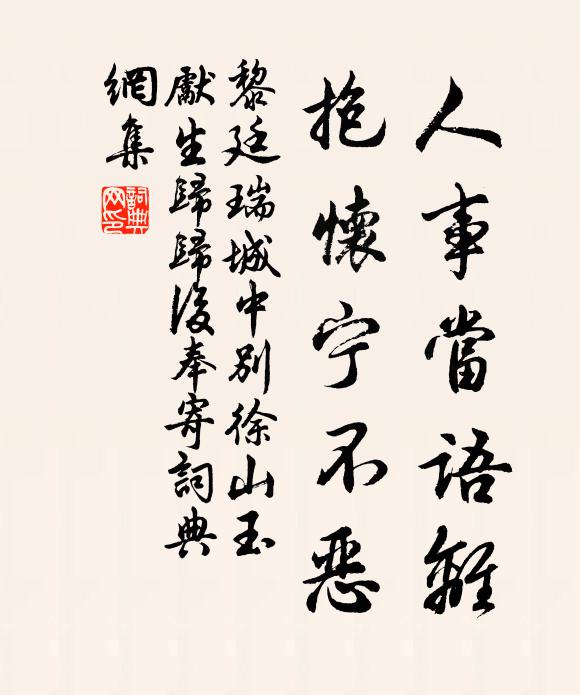 人事當語離
抱懷宁不惡
黎廷瑞城中別徐山玉
獻生歸歸後奉寄詞典
網集
詞典
网印